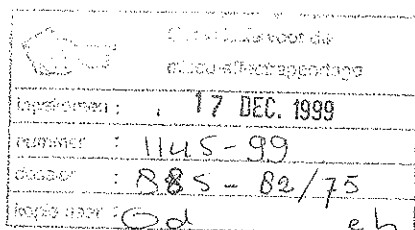 Commissie voor de
milieu-effectrapportage
ingekomen : 17 DEC. 1999
nummer : 1145-99
dossier : 885 - 82/75
kopie naar : Od eh